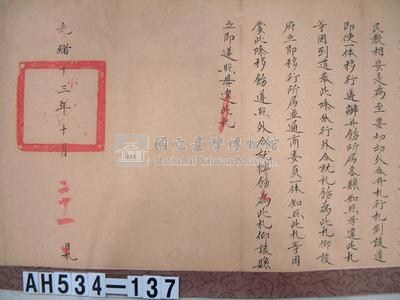 民教相安是為至要切切外合并札行札到該道
即使一体移行遵辦并飭所属各縣知照毋違此札
等因到道奉此除分行外合就札飭為此札仰該
府立即移行所属並通商委員一体知照此札等因
蒙此除移飭遵照外合就轉飭為此札仰該縣
立即遵照毋違此札
光緒十三年十月二十一日札
國立臺灣博物館
National Taiwan Museum
AH534-137